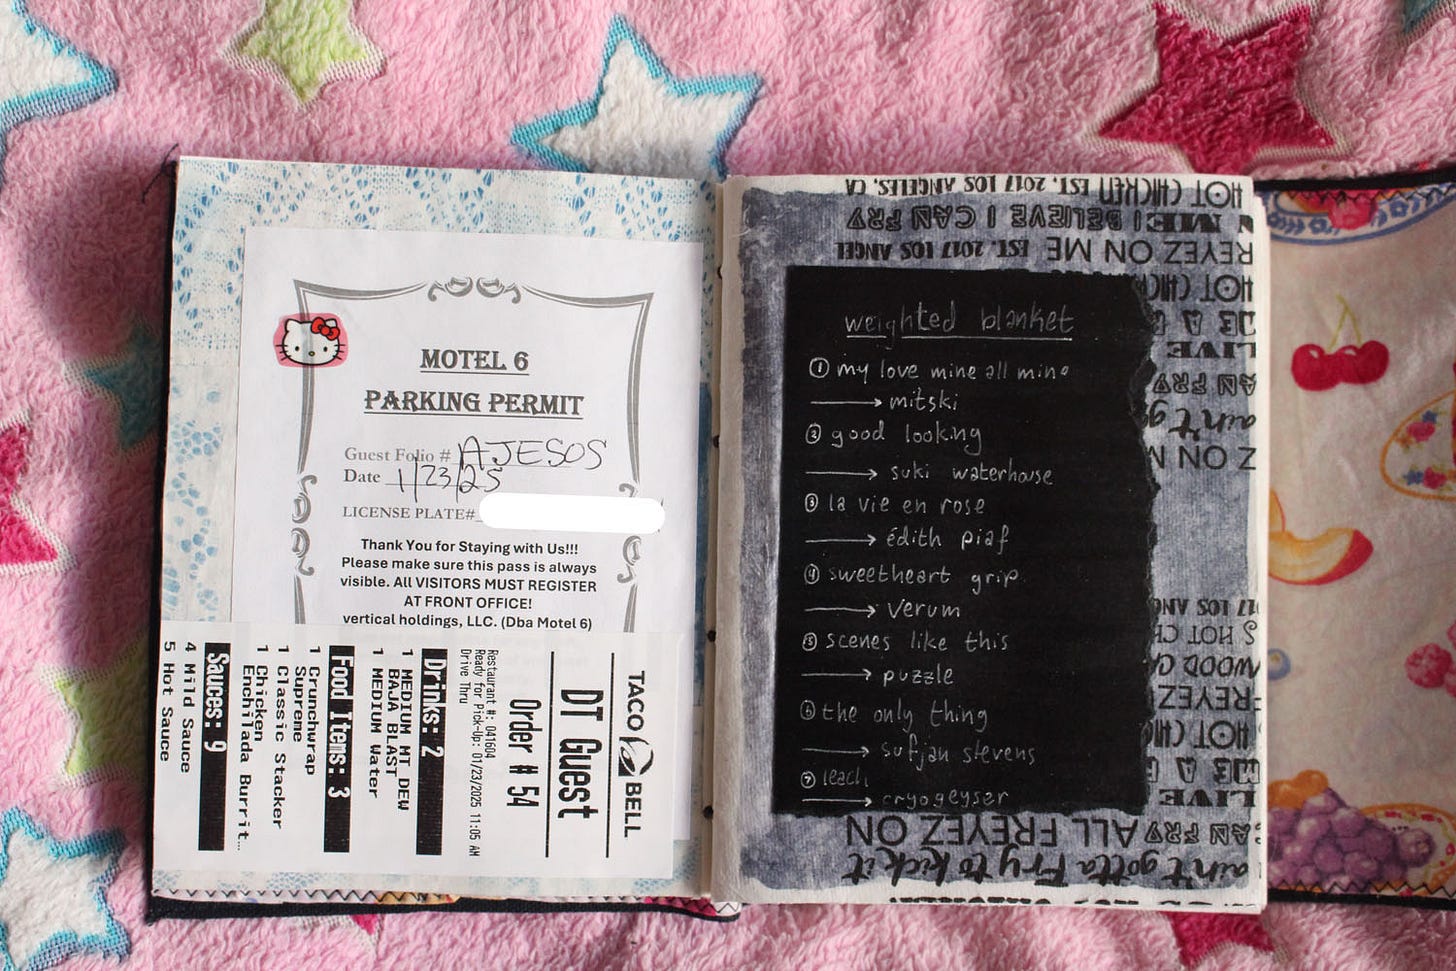 MOTEL 6
PARKING PERMIT
Guest Folio # AJESOS
Date 1/23/25
LICENSE PLATE#
Thank You for Staying with Us!!!
Please make sure this pass is always
visible. All VISITORS MUST REGISTER
AT FRONT OFFICE!
vertical holdings, LLC. (Dba Motel 6)
TACO BELL
DT Guest
Order # 54
Restaurant #: 041604
Ready for Pick-Up: 01/23/2025 11:05 AM
Drive Thru
Drinks: 2
1 MEDIUM MT DEW
BAJA BLAST
1 MEDIUM Water
Food Items: 3
1 Crunchwrap
Supreme
1 Classic Stacker
1 Chicken
Enchilada Burrit...
Sauces: 9
4 Mild Sauce
5 Hot Sauce
weighted blanket
① my love mine all mine
mitski
② good looking
suki waterhouse
③ la vie en rose
édith piaf
④ sweetheart grip
verum
⑤ scenes like this
puzzle
⑥ the only thing
sufjan stevens
⑦ leach
cryogeyser
ain't gotta Fry to kick it
CAN FRY ALL FREYEZ ON
LIVE
ME A
HOT CHIC
FREYEZ
WOOD CA
S HOT CH
017 LOS AN
Z ON M
ain't go
AN FRY
LIVE
HOT CHIC
REYEZ ON ME EST. 2017 LOS ANGEL
N ME I BELIEVE I CAN FRY
HOT CHICKEN EST. 2017 LOS ANGELES, CA